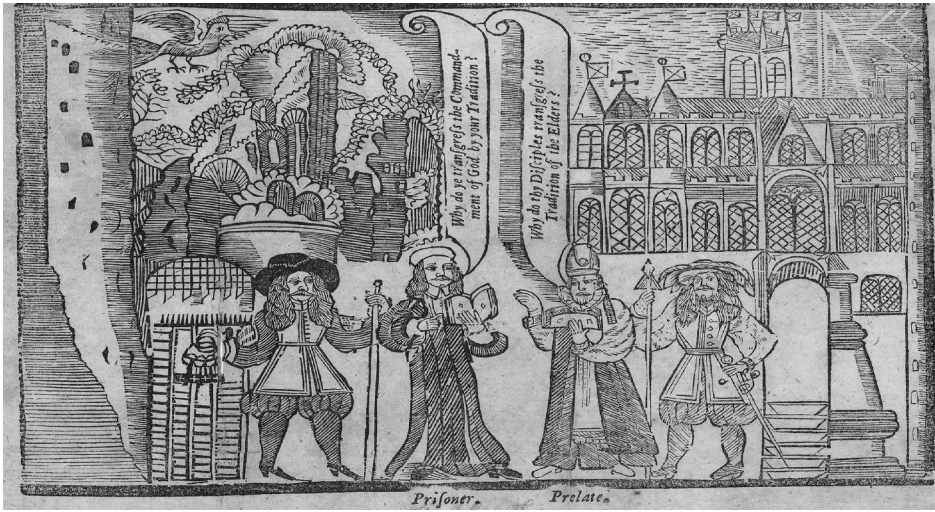 Why do ye tranſgreſs the Command-
ment of God by your Tradition?
Why do thy Diſciples tranſgreſs the
Tradition of the Elders?
Priſoner.
Prelate.